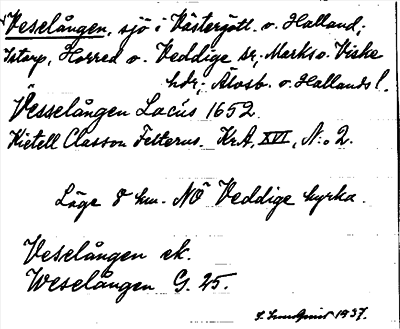 Veselången, sjö i Västergötl. o. Halland;
Istorp, Horred o. Veddige sr; Marks o. Viske
hdr; Älvsb. o. Hallands l.
Vesselången Lacus 1652.
Kietell Classon Felterus. KrA, XVI, N:o 2.
Läge 8 km. NÖ Veddige kyrka.
Veselången ek.
Weselången G. 25.
1937.